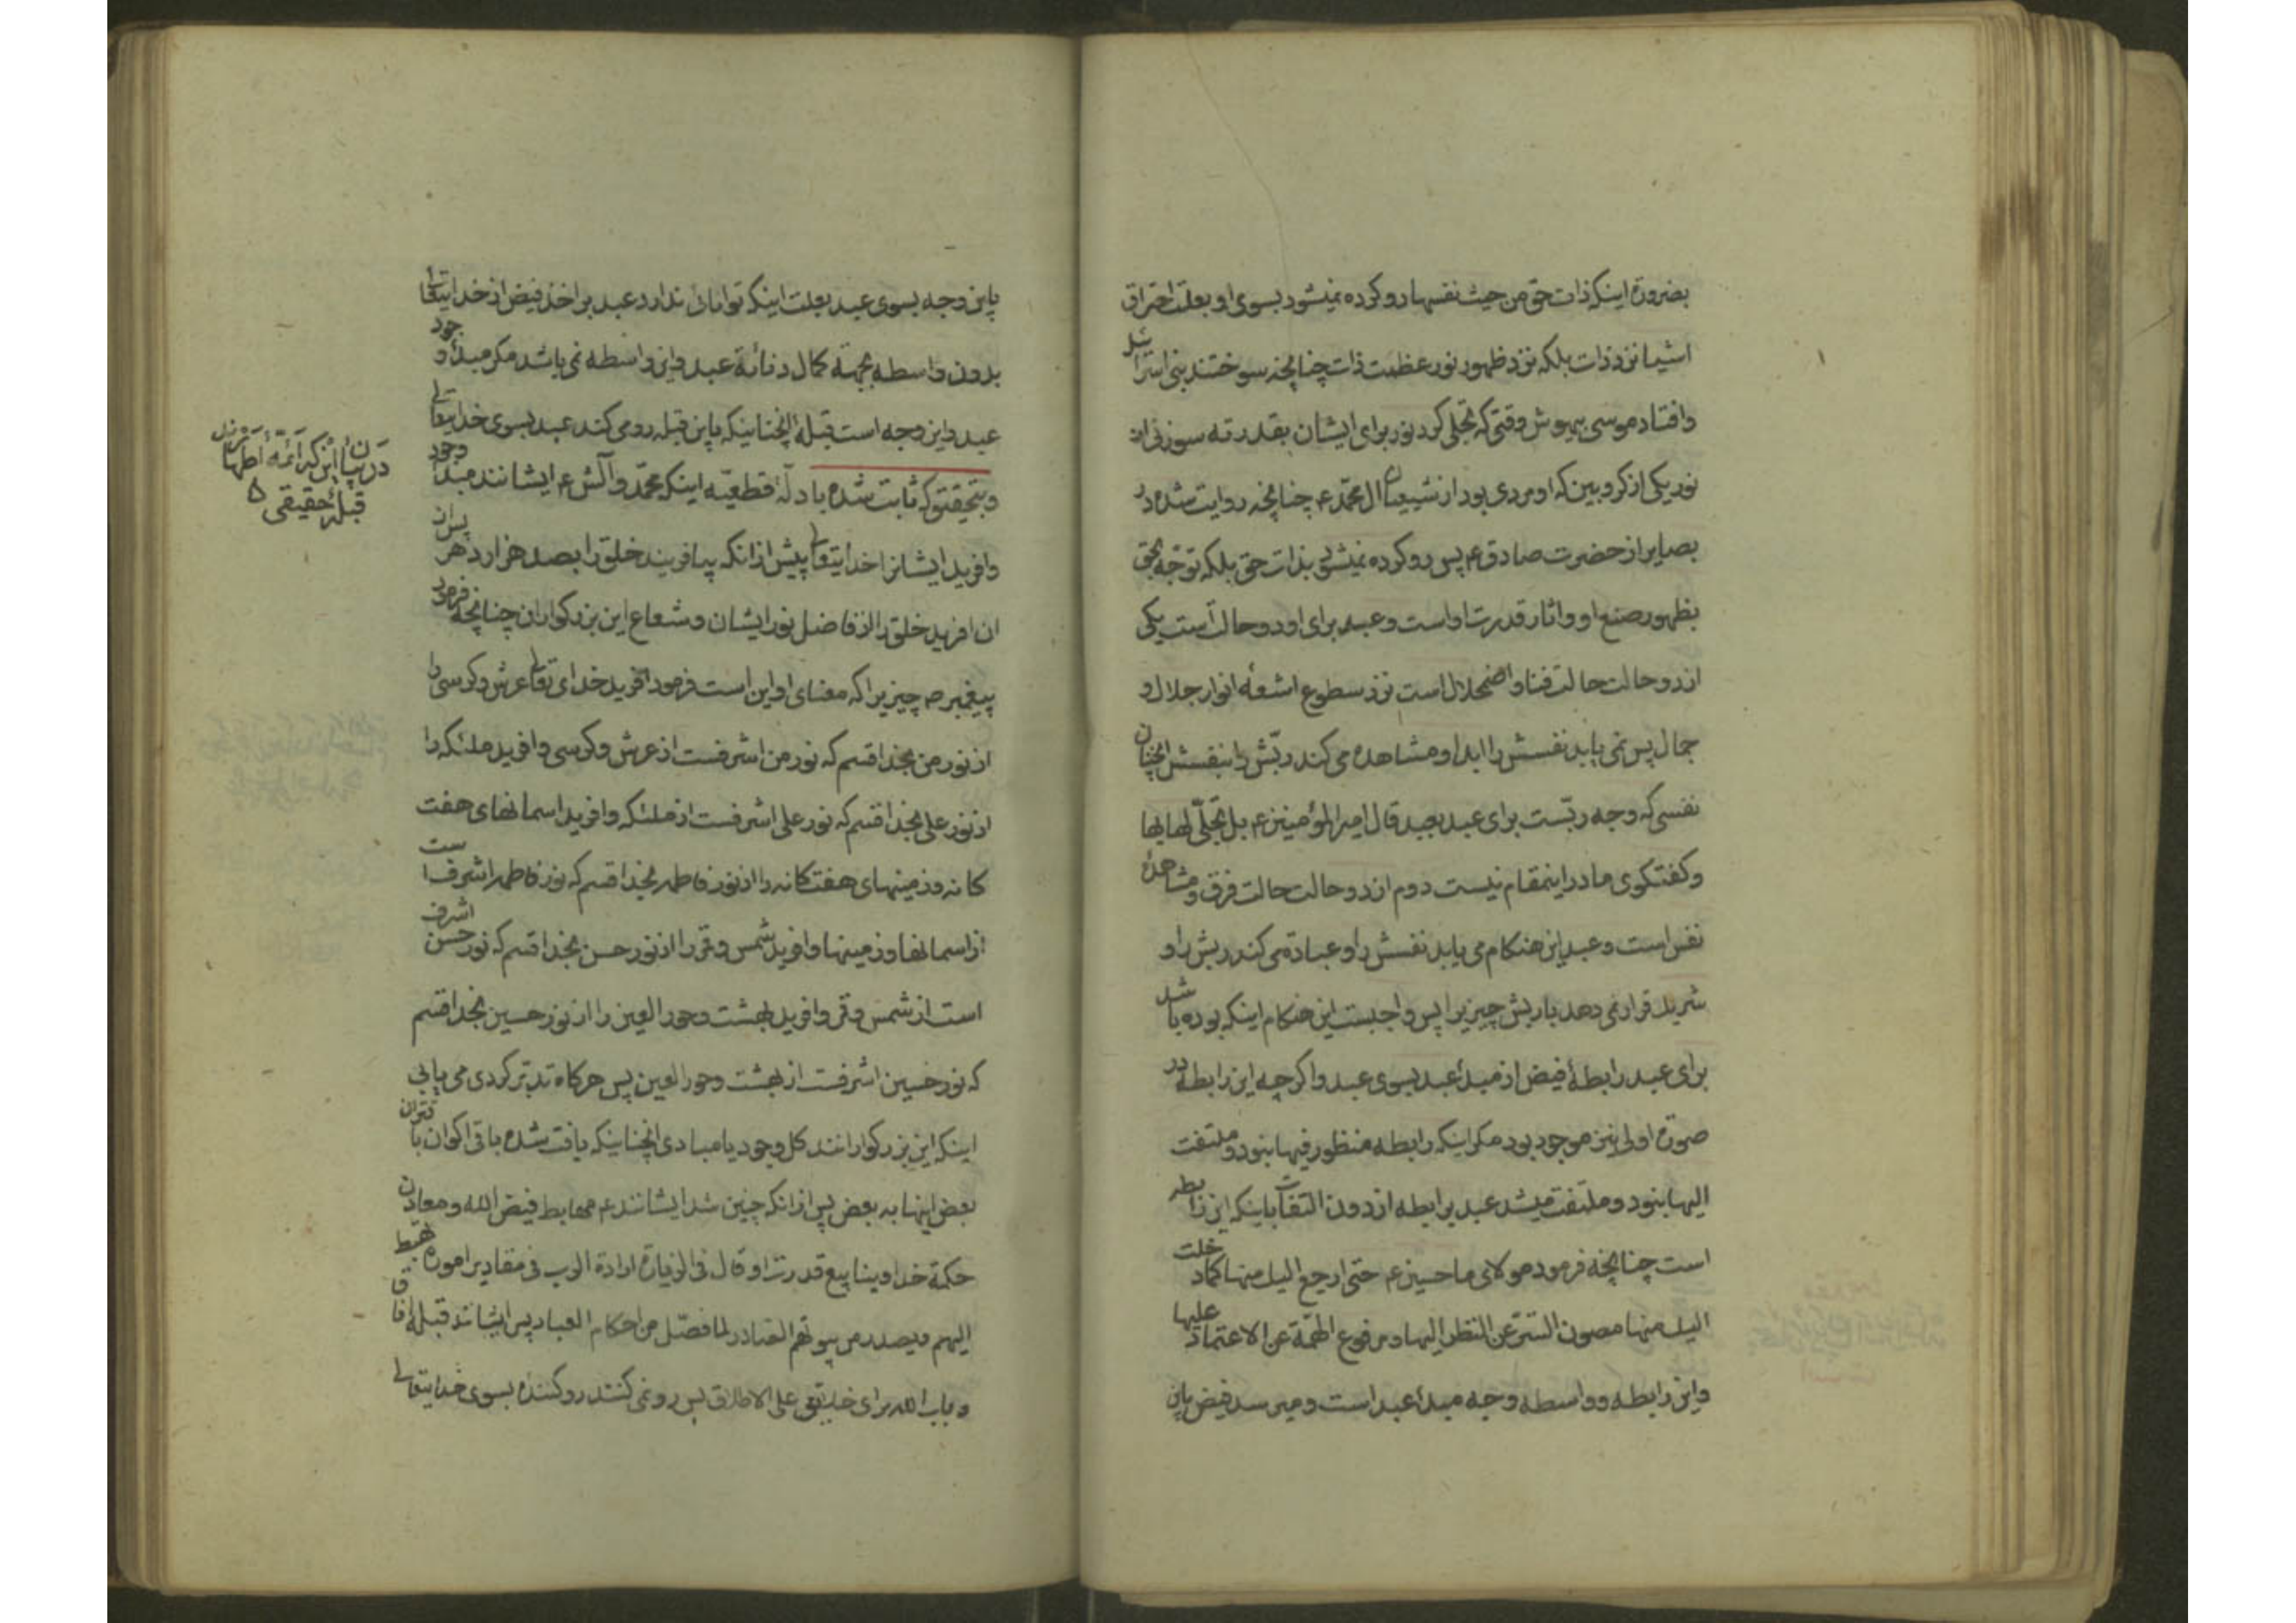 بضرورة اینکه ذات حق من حیث نفسها رو کرده نمیشود بسوی او بعلت احتراق
اشیا نزد ذات بلکه نزد ظهور نور عظمت ذات چنانچه سوختند بنی اسرائیل
وافتاد موسی بیهوش وقتی که تجلی کرد نور برای ایشان بقدر ته سوزنی از
نور یکی از کروبین که او مردی بود از شیعیان ال محمد ع چنانچه روایت شده در
بصایر از حضرت صادق ع پس رو کرده نمیشود بذات حق بلکه توجه بحق
بظهور صنع او واثار قدرت اواست وعبد برای او دو حالت است یکی
از دو حالت حالت فنا و اضمحلال است نزد سطوع اشعه انوار جلال و
جمال پس نمی یابد نفسش را ابدا و مشاهده می کند ربش را بنفسش انچنان
نفسی که وجه ربست برای عبد بعبد قال امیر المؤمنین ع بل تجلی لها بها
و کفتکوی ما در اینمقام نیست دوم از دو حالت حالت فرق و مشاهدهٔ
نفس است وعبد این هنکام می یابد نفسش را و عبادة می کند ربش را و
شریک قرار نمی دهد بربش چیزیرا پس واجبست این هنکام اینکه بوده باشد
برای عبد رابطهٔ فیض از مبدء عبد بسوی عبد و اکر چه این رابطه در
صورة اولی نیز موجود بود مکر اینکه رابطه منظور فیها نبود و ملتفت
الیها نبود و ملتفت میشد عبد برابطه از دون التفات باینکه این رابطه
است چنانچه فرمود مولای ما حسین ع حتی ارجع الیک منها کما دخلت
الیک منها مصون السر عن النظر الیها و مرفوع الهمة عن الاعتماد علیها
واین رابطه و واسطه وجه مبدء عبد است ومی رسد فیض باین
باین وجه بسوی عبد بعلت اینکه توانائی ندارد عبد بر اخذ فیض از خدایتعالی
بدون واسطه بجهة کمال دنائة عبد واین واسطه نمی باشد مکر مبدء وجود
عبد واین وجه است قبلهٔ انچنانیکه باین قبله رو می کند عبد بسوی خدایتعالی
وبتحقیق که ثابت شده بادلهٔ قطعیه اینکه محمد وآلش ع ایشانند مبدء وجود
وافرید ایشانرا خدایتعالی پیش از انکه بیافریند خلق را بصد هزار دهر پس از
ان افرید خلق را از فاضل نور ایشان و شعاع این بزرکواران چنانچه فرمود
پیغمبر ص چیزیرا که معنای او این است فرمود افرید خدای تعالی عرش و کرسی را
از نور من بخدا قسم که نور من اشرفست از عرش و کرسی وافرید ملئکه را
از نور علی بخدا قسم که نور علی اشرفست از ملئکه وافرید اسمانهای هفت
کانه و زمینهای هفتکانه را از نور فاطمه بخدا قسم که نور فاطمه اشرف است
از اسمانها و زمینها وافرید شمس و قمر را از نور حسن بخدا قسم که نور حسن اشرف
است از شمس و قمر وافرید بهشت وحور العین را از نور حسین بخدا قسم
که نور حسین اشرفست از بهشت وحور العین پس هرکاه تدبر کردی می یابی
اینکه این بزرکوارانند کل وجود یا مبادی انچنانیکه یافت شده باقی اکوان باقتران
بعض اینها به بعض پس از انکه چنین شد ایشانند ع مهابط فیض الله ومعادن
حکمة خدا وینابیع قدرت او قال فی الزیارة ارادة الرب فی مقادیر اموره تهبط
الیهم ویصدر من بیوتهم الصادر لما فصل من احکام العباد پس ایشانند قبلهٔ افاق
و باب الله برای خلایق علی الاطلاق پس رو نمی کنند رو کننده بسوی خدایتعالی
در بیان این که ائمهٔ اطهار
قبلهٔ حقیقی